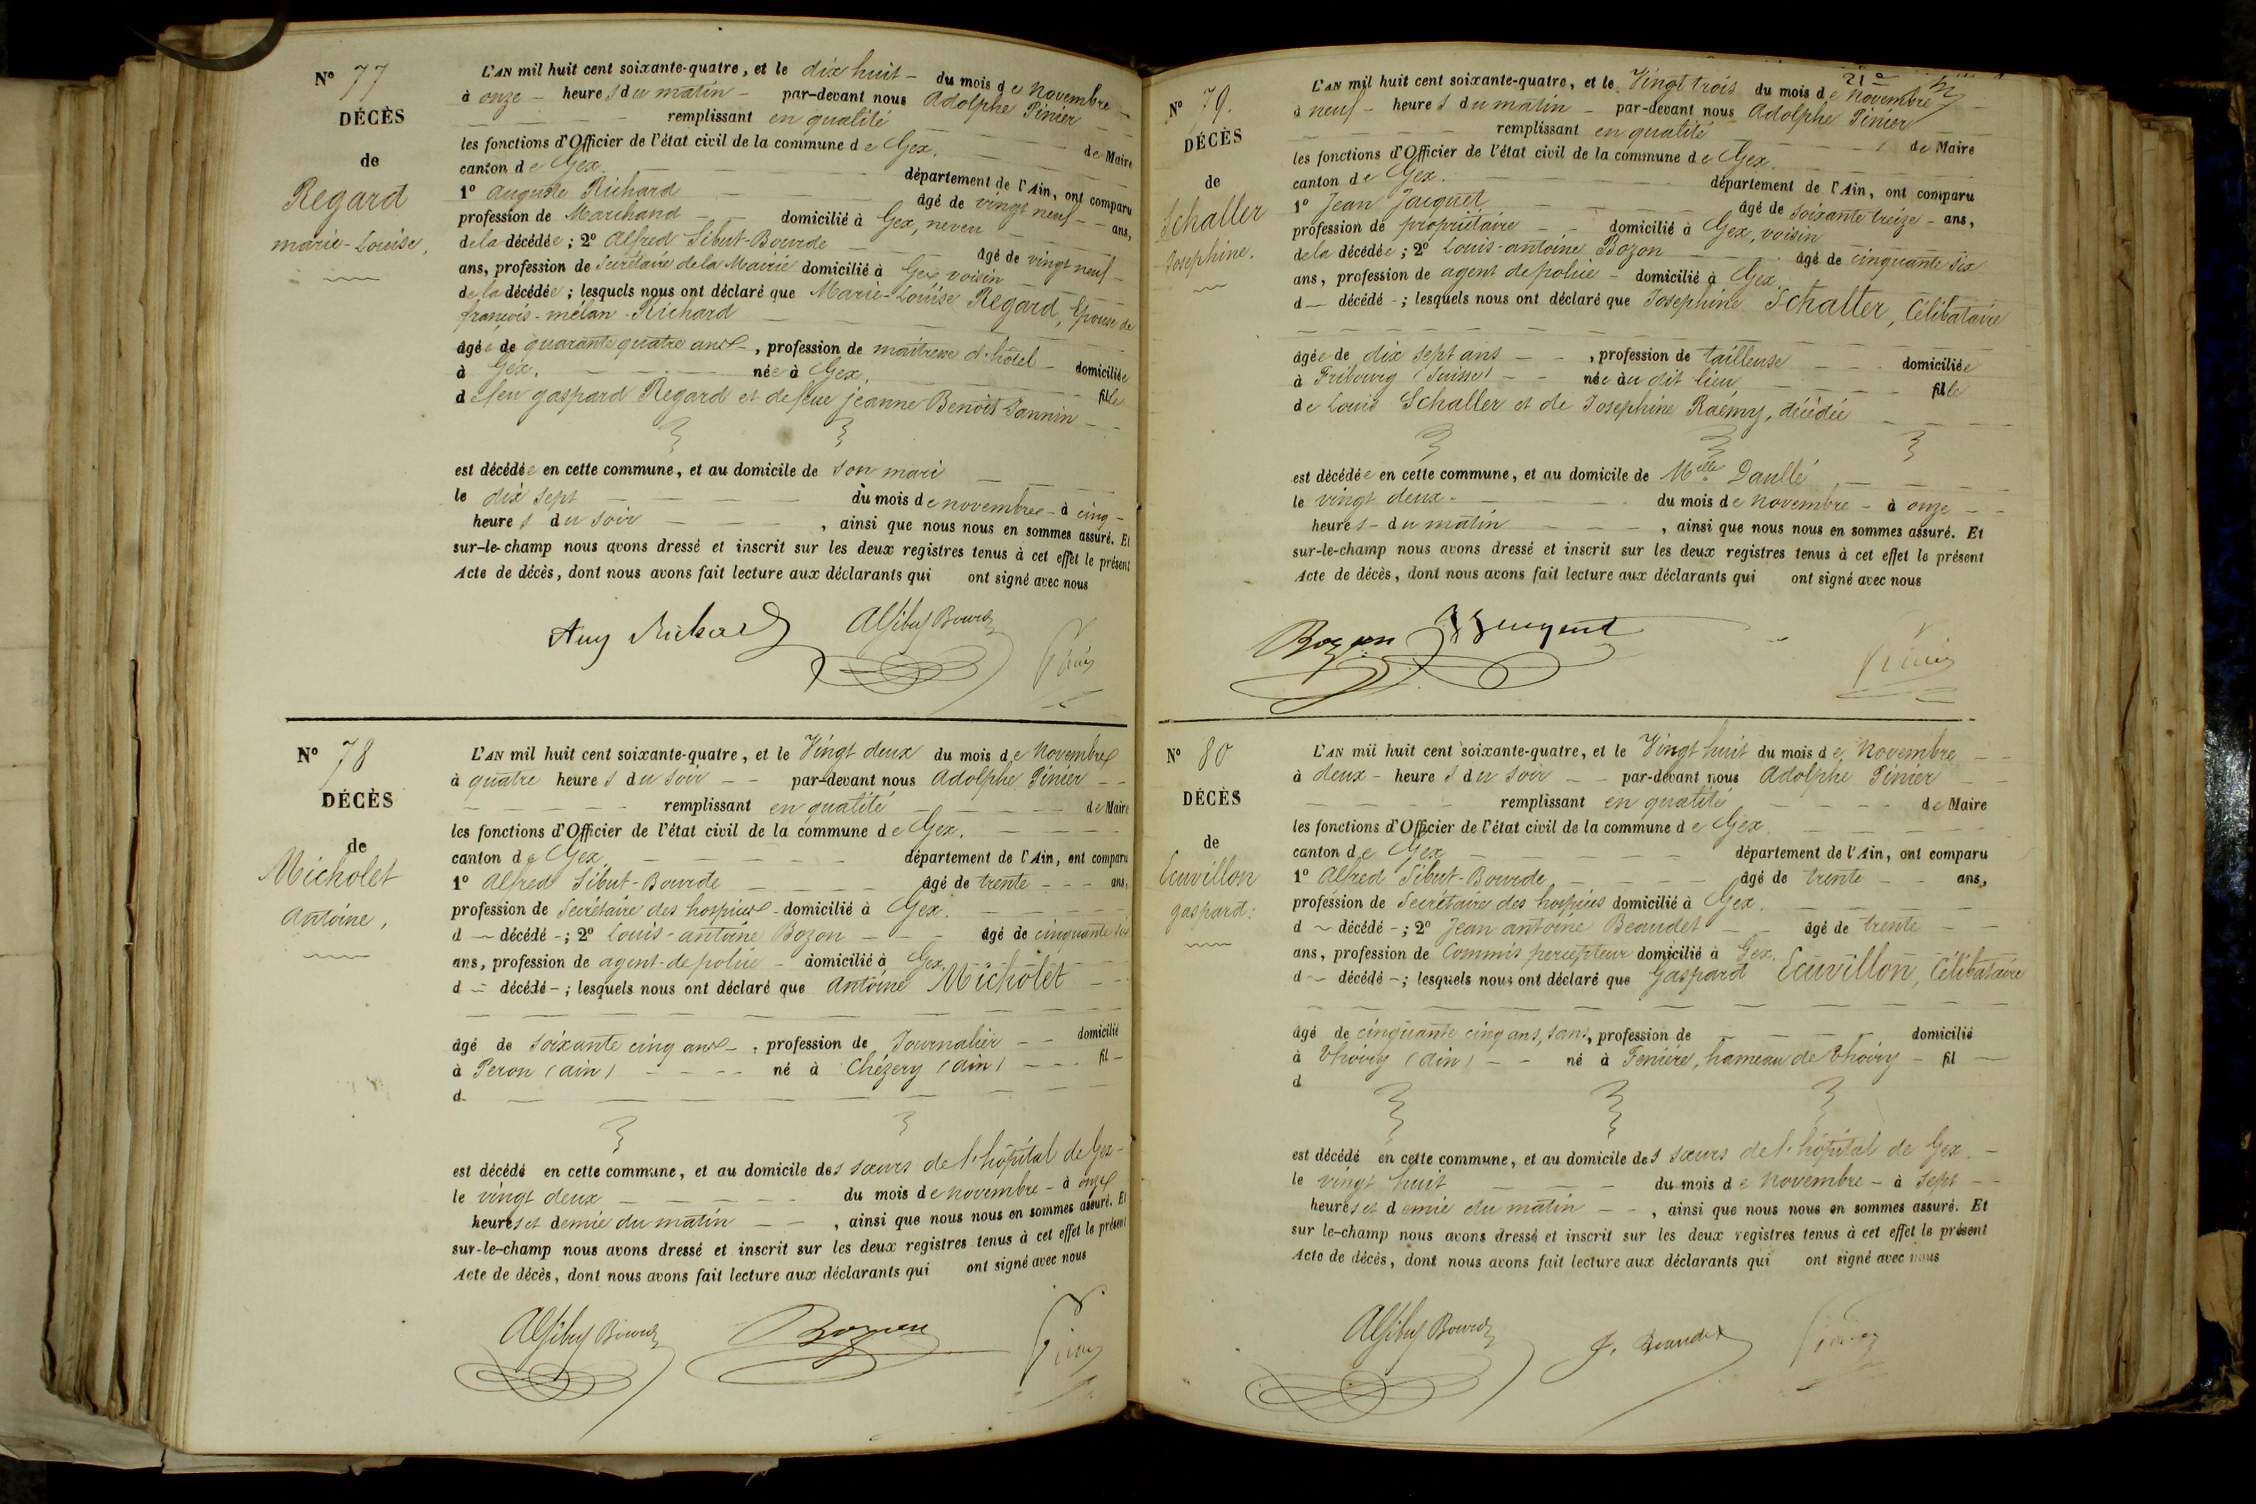 N° 77
DÉCÈS
de
Regard
marie-Louise,
L'AN mil huit cent soixante-quatre, et le dix huit - du mois de Novembre
à onze - heures du matin - par-devant nous Adolphe Pinier
remplissant en qualité de Maire
les fonctions d'Officier de l'état civil de la commune de Gex.
canton de Gex. département de l'Ain, ont comparu
1° Auguste Richard âgé de vingt neuf - ans,
profession de Marchand domicilié à Gex, neveu
de la décédée ; 2° Alfred Sibut-Bourde âgé de vingt neuf -
ans, profession de Secrétaire de la Mairie domicilié à Gex voisin
de la décédée ; lesquels nous ont déclaré que Marie-Louise Regard, Epouse de
françois-mélan-Richard
âgée de quarante quatre ans -, profession de maitresse d'hôtel - domiciliée
à Gex. née à Gex. fille
de feu gaspard Regard et de feue jeanne Benoît Lannin
est décédée en cette commune, et au domicile de son mari
le dix sept du mois de novembre - à cinq -
heures du soir , ainsi que nous nous en sommes assuré. Et
sur-le-champ nous avons dressé et inscrit sur les deux registres tenus à cet effet le présent
Acte de décès, dont nous avons fait lecture aux déclarants qui ont signé avec nous
Aug Richard ASibut Bourde Pinier
N° 78
DÉCÈS
de
Micholet
Antoine,
L'AN mil huit cent soixante-quatre, et le Vingt deux du mois de Novembre
à quatre heures du soir - - par-devant nous Adolphe Pinier - -
remplissant en qualité de Maire
les fonctions d'Officier de l'état civil de la commune de Gex.
canton de Gex. département de l'Ain, ont comparu
1° Alfred Sibut-Bourde âgé de trente - - - ans,
profession de Secrétaire des hospices - domicilié à Gex.
d - décédé - ; 2° Louis-antoine Bozon - - - âgé de cinquante six
ans, profession de agent-de police - domicilié à Gex.
d - décédé - ; lesquels nous ont déclaré que Antoine Micholet - -
âgé de soixante cinq ans -, profession de Journalier - - domicilié
à Peron (ain) - - - - né à Chézery (ain) - - - fil -
d
est décédé en cette commune, et au domicile des sœurs de l'hôpital de Gex -
le vingt deux du mois de novembre - à onze
heures et demie du matin - - , ainsi que nous nous en sommes assuré. Et
sur-le-champ nous avons dressé et inscrit sur les deux registres tenus à cet effet le présent
Acte de décès, dont nous avons fait lecture aux déclarants qui ont signé avec nous
ASibut Bourde Bozon Pinier
21e
N° 79.
DÉCÈS
de
Schaller
Josephine.
L'AN mil huit cent soixante-quatre, et le Vingt trois du mois de Novembre
à neuf - heures du matin - par-devant nous Adolphe Pinier
remplissant en qualité de Maire
les fonctions d'Officier de l'état civil de la commune de Gex
canton de Gex. département de l'Ain, ont comparu
1° Jean Jacquet âgé de soixante treize - ans,
profession de propriétaire - - domicilié à Gex, voisin
de la décédée ; 2° Louis-antoine Bozon âgé de cinquante six
ans, profession de agent de police - domicilié à Gex.
d - décédé - ; lesquels nous ont déclaré que Josephine Schaller, Célibataire
âgée de dix sept ans - - , profession de tailleuse - - - domiciliée
à Fribourg (Suisse) - - née au dit lieu fille
de Louis Schaller et de Josephine Raémy, décédée
est décédée en cette commune, et au domicile de Melle Daullé
le vingt deux - du mois de novembre - à onze - -
heures - du matin , ainsi que nous nous en sommes assuré. Et
sur-le-champ nous avons dressé et inscrit sur les deux registres tenus à cet effet le présent
Acte de décès, dont nous avons fait lecture aux déclarants qui ont signé avec nous
Bozon Pinier
N° 80
DÉCÈS
de
Ecuvillon
gaspard.
L'AN mil huit cent soixante-quatre, et le Vingt huit du mois de Novembre
à deux - heures du soir - - par-devant nous Adolphe Pinier
remplissant en qualité de Maire
les fonctions d'Officier de l'état civil de la commune de Gex
canton de Gex département de l'Ain, ont comparu
1° Alfred Sibut-Bourde âgé de trente - - ans,
profession de Secrétaire des hospices domicilié à Gex
d - décédé - ; 2° Jean antoine Beaudet - - âgé de trente - -
ans, profession de Commis percepteur domicilié à Gex.
d - décédé - ; lesquels nous ont déclaré que Gaspard Ecuvillon, Célibataire
âgé de cinquante cinq ans, sans, profession de domicilié
à Thoiry (ain) - - né à Fenière, hameau de Thoiry - fil -
d
est décédé en cette commune, et au domicile des sœurs de l'hôpital de Gex. -
le vingt huit du mois de Novembre - à sept - -
heures et demie du matin - - , ainsi que nous nous en sommes assuré. Et
sur le-champ nous avons dressé et inscrit sur les deux registres tenus à cet effet le présent
Acte de décès, dont nous avons fait lecture aux déclarants qui ont signé avec nous
ASibut Bourde J. Beaudet Pinier